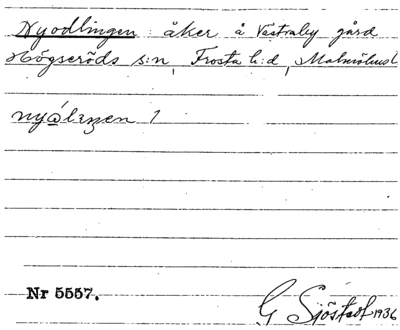 Nyodlingen: åker å Västraby gård
Högseröds s:n, Frosta h:d, Malmöhusl
Nr 5557.
G Sjöstedt 1936